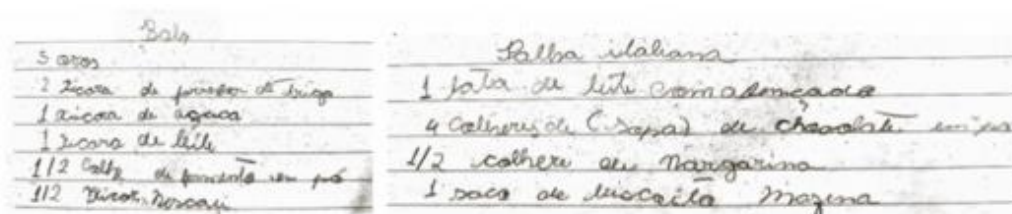 Bolo
3 ovos
2 xicara de farinha de trigo
1 xicara de açuca
1 xicara de leite
1/2 colhe de fermento em pó
1/2 Nescau
Palha italiana
1 lata de leite comdençado
4 colheres de (sopa) de chocolate em po
1/2 colhere de Margarina
1 saco de biscoito Mazena